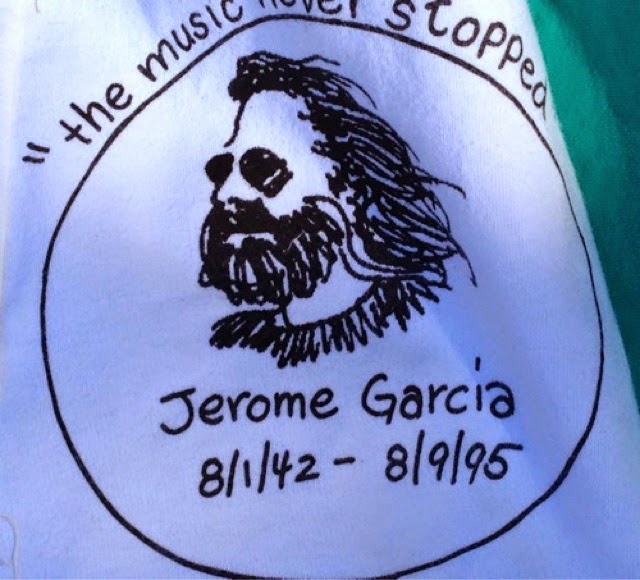 "the music never stopped
Jerome Garcia
8/1/42 - 8/9/95